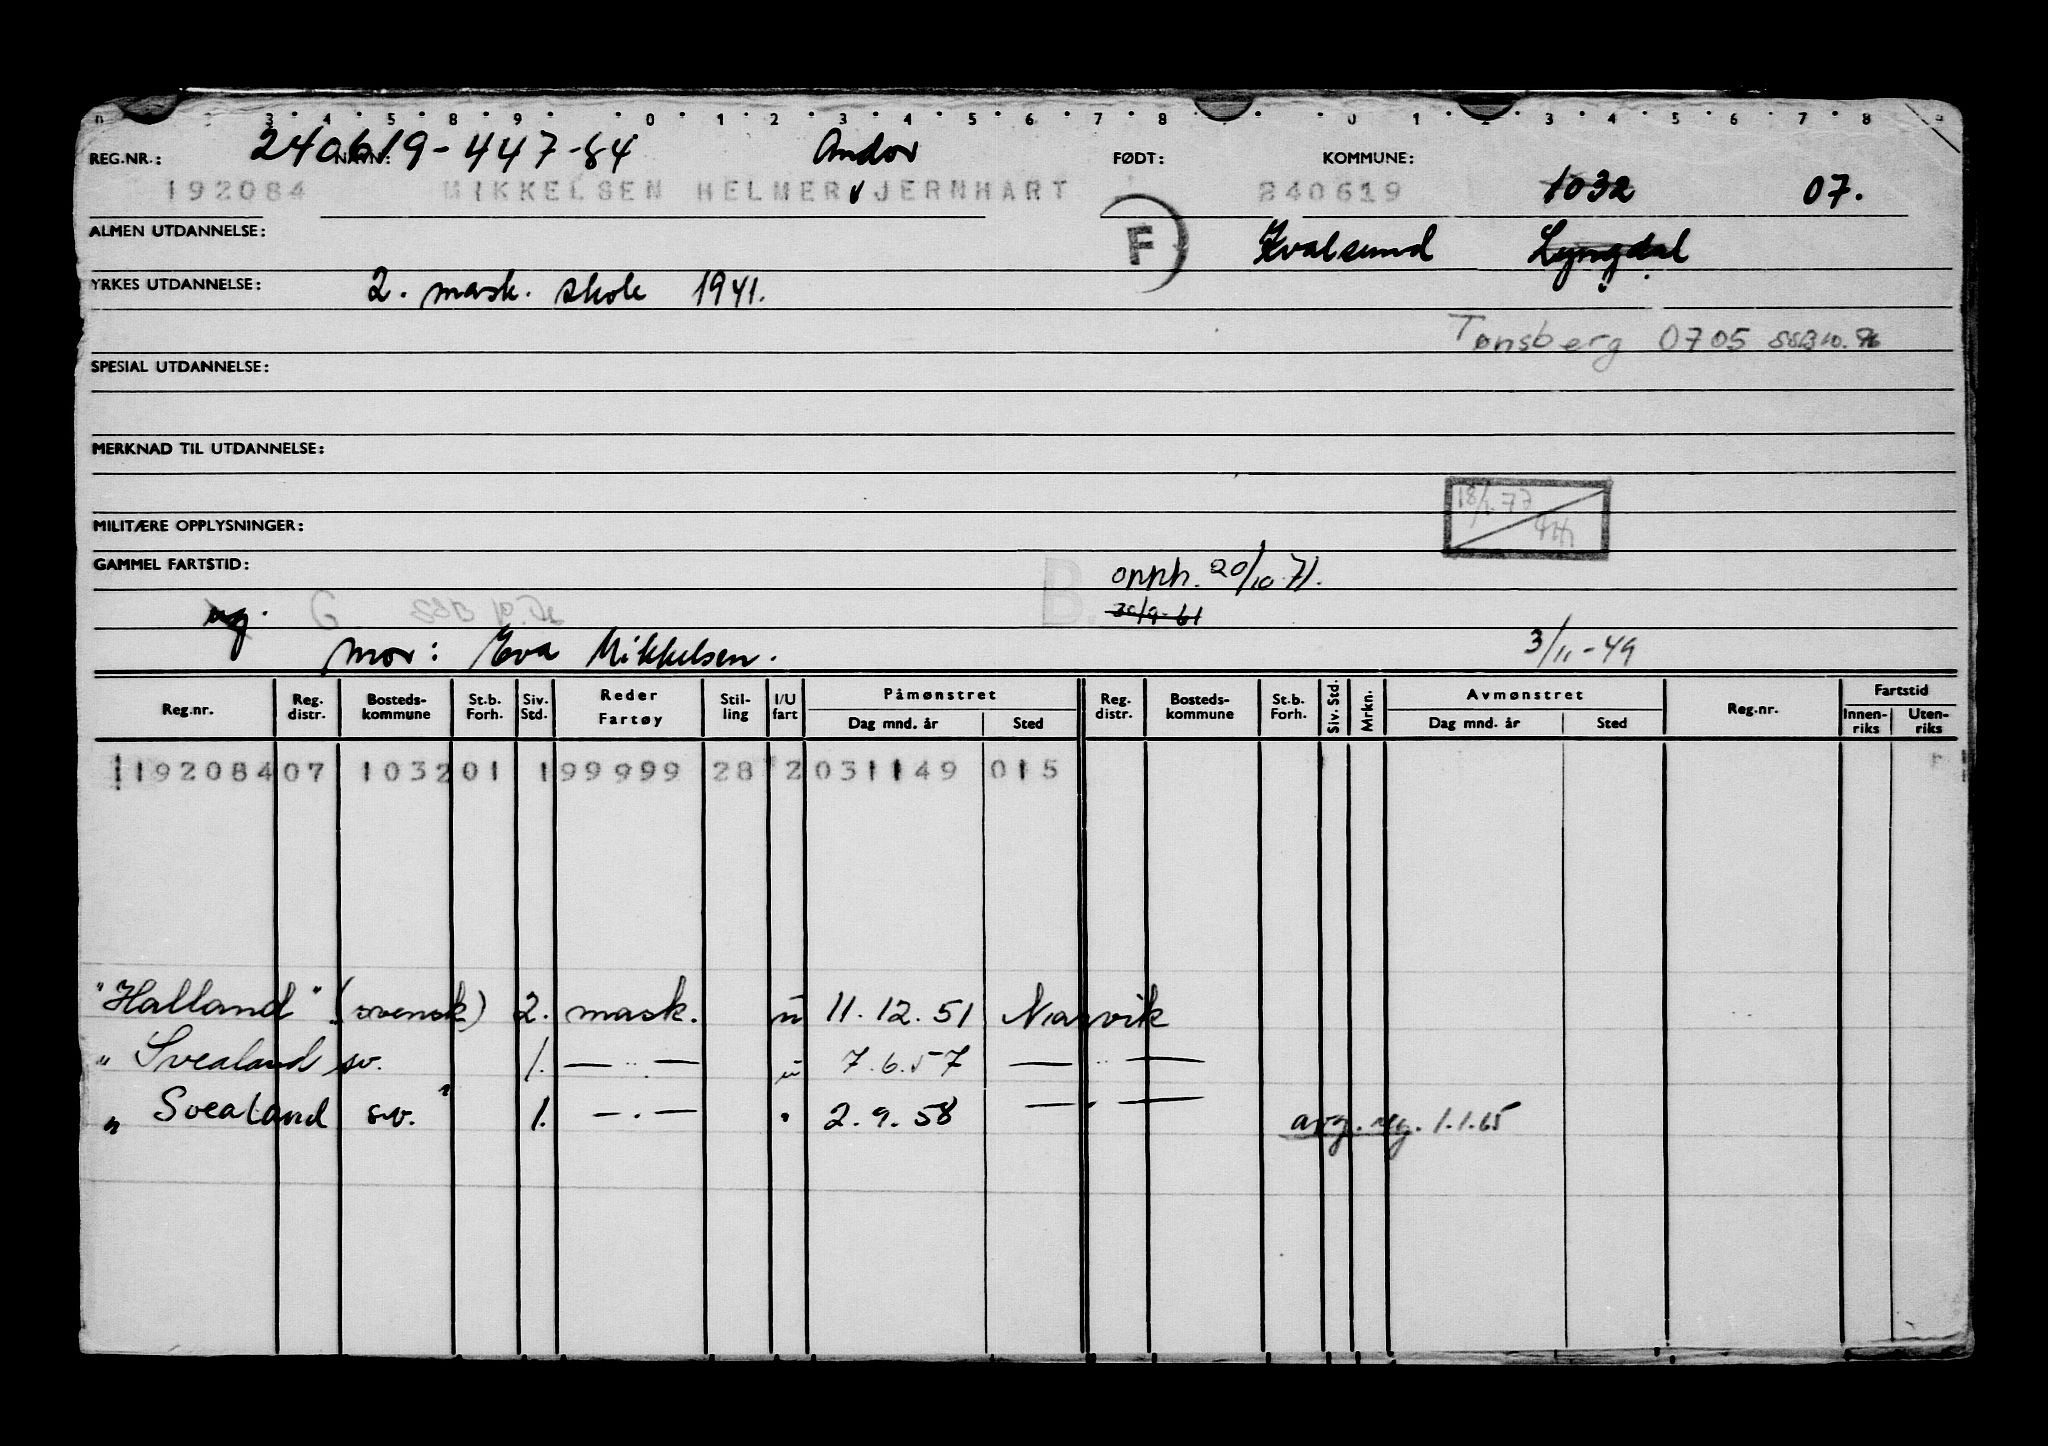 3 4 5 8 9 0 1 2 3 4 5 6 7 8 0 1 2 3 4 5 6 7 8 9
REG.NR.: 240619-447-84 NAVN: Andor FØDT: KOMMUNE:
192084 MIKKELSEN HELMER JERNHART 240619 1032 07.
ALMEN UTDANNELSE: F Kvalsund Lyngdal
YRKES UTDANNELSE: 2. mask. skole 1941.
Tønsberg 0705
SPESIAL UTDANNELSE:
MERKNAD TIL UTDANNELSE:
MILITÆRE OPPLYSNINGER:
GAMMEL FARTSTID: B. opph. 20/10 71.
30/9-61
mor: Eva Mikkelsen. 3/11-49
Reg.nr. Reg. distr. Bosteds-kommune St.b. Forh. Siv. Std. Reder Fartøy Stil-ling I/U fart Påmønstret Dag mnd. år Sted Reg. distr. Bosteds-kommune St.b. Forh. Siv. Std. Mrkn. Avmønstret Dag mnd. år Sted Reg.nr. Fartstid Innen-riks Uten-riks
192084 07 1032 01 1 99999 28 2 031149 015
"Halland" (svensk) 2. mask. u 11.12.51 Narvik
" Svealand sv. 1. — " — u 7.6.57 — " —
" Svealand sv." 1. — . — " 2.9.58 — " — avg. reg. 1.1.65